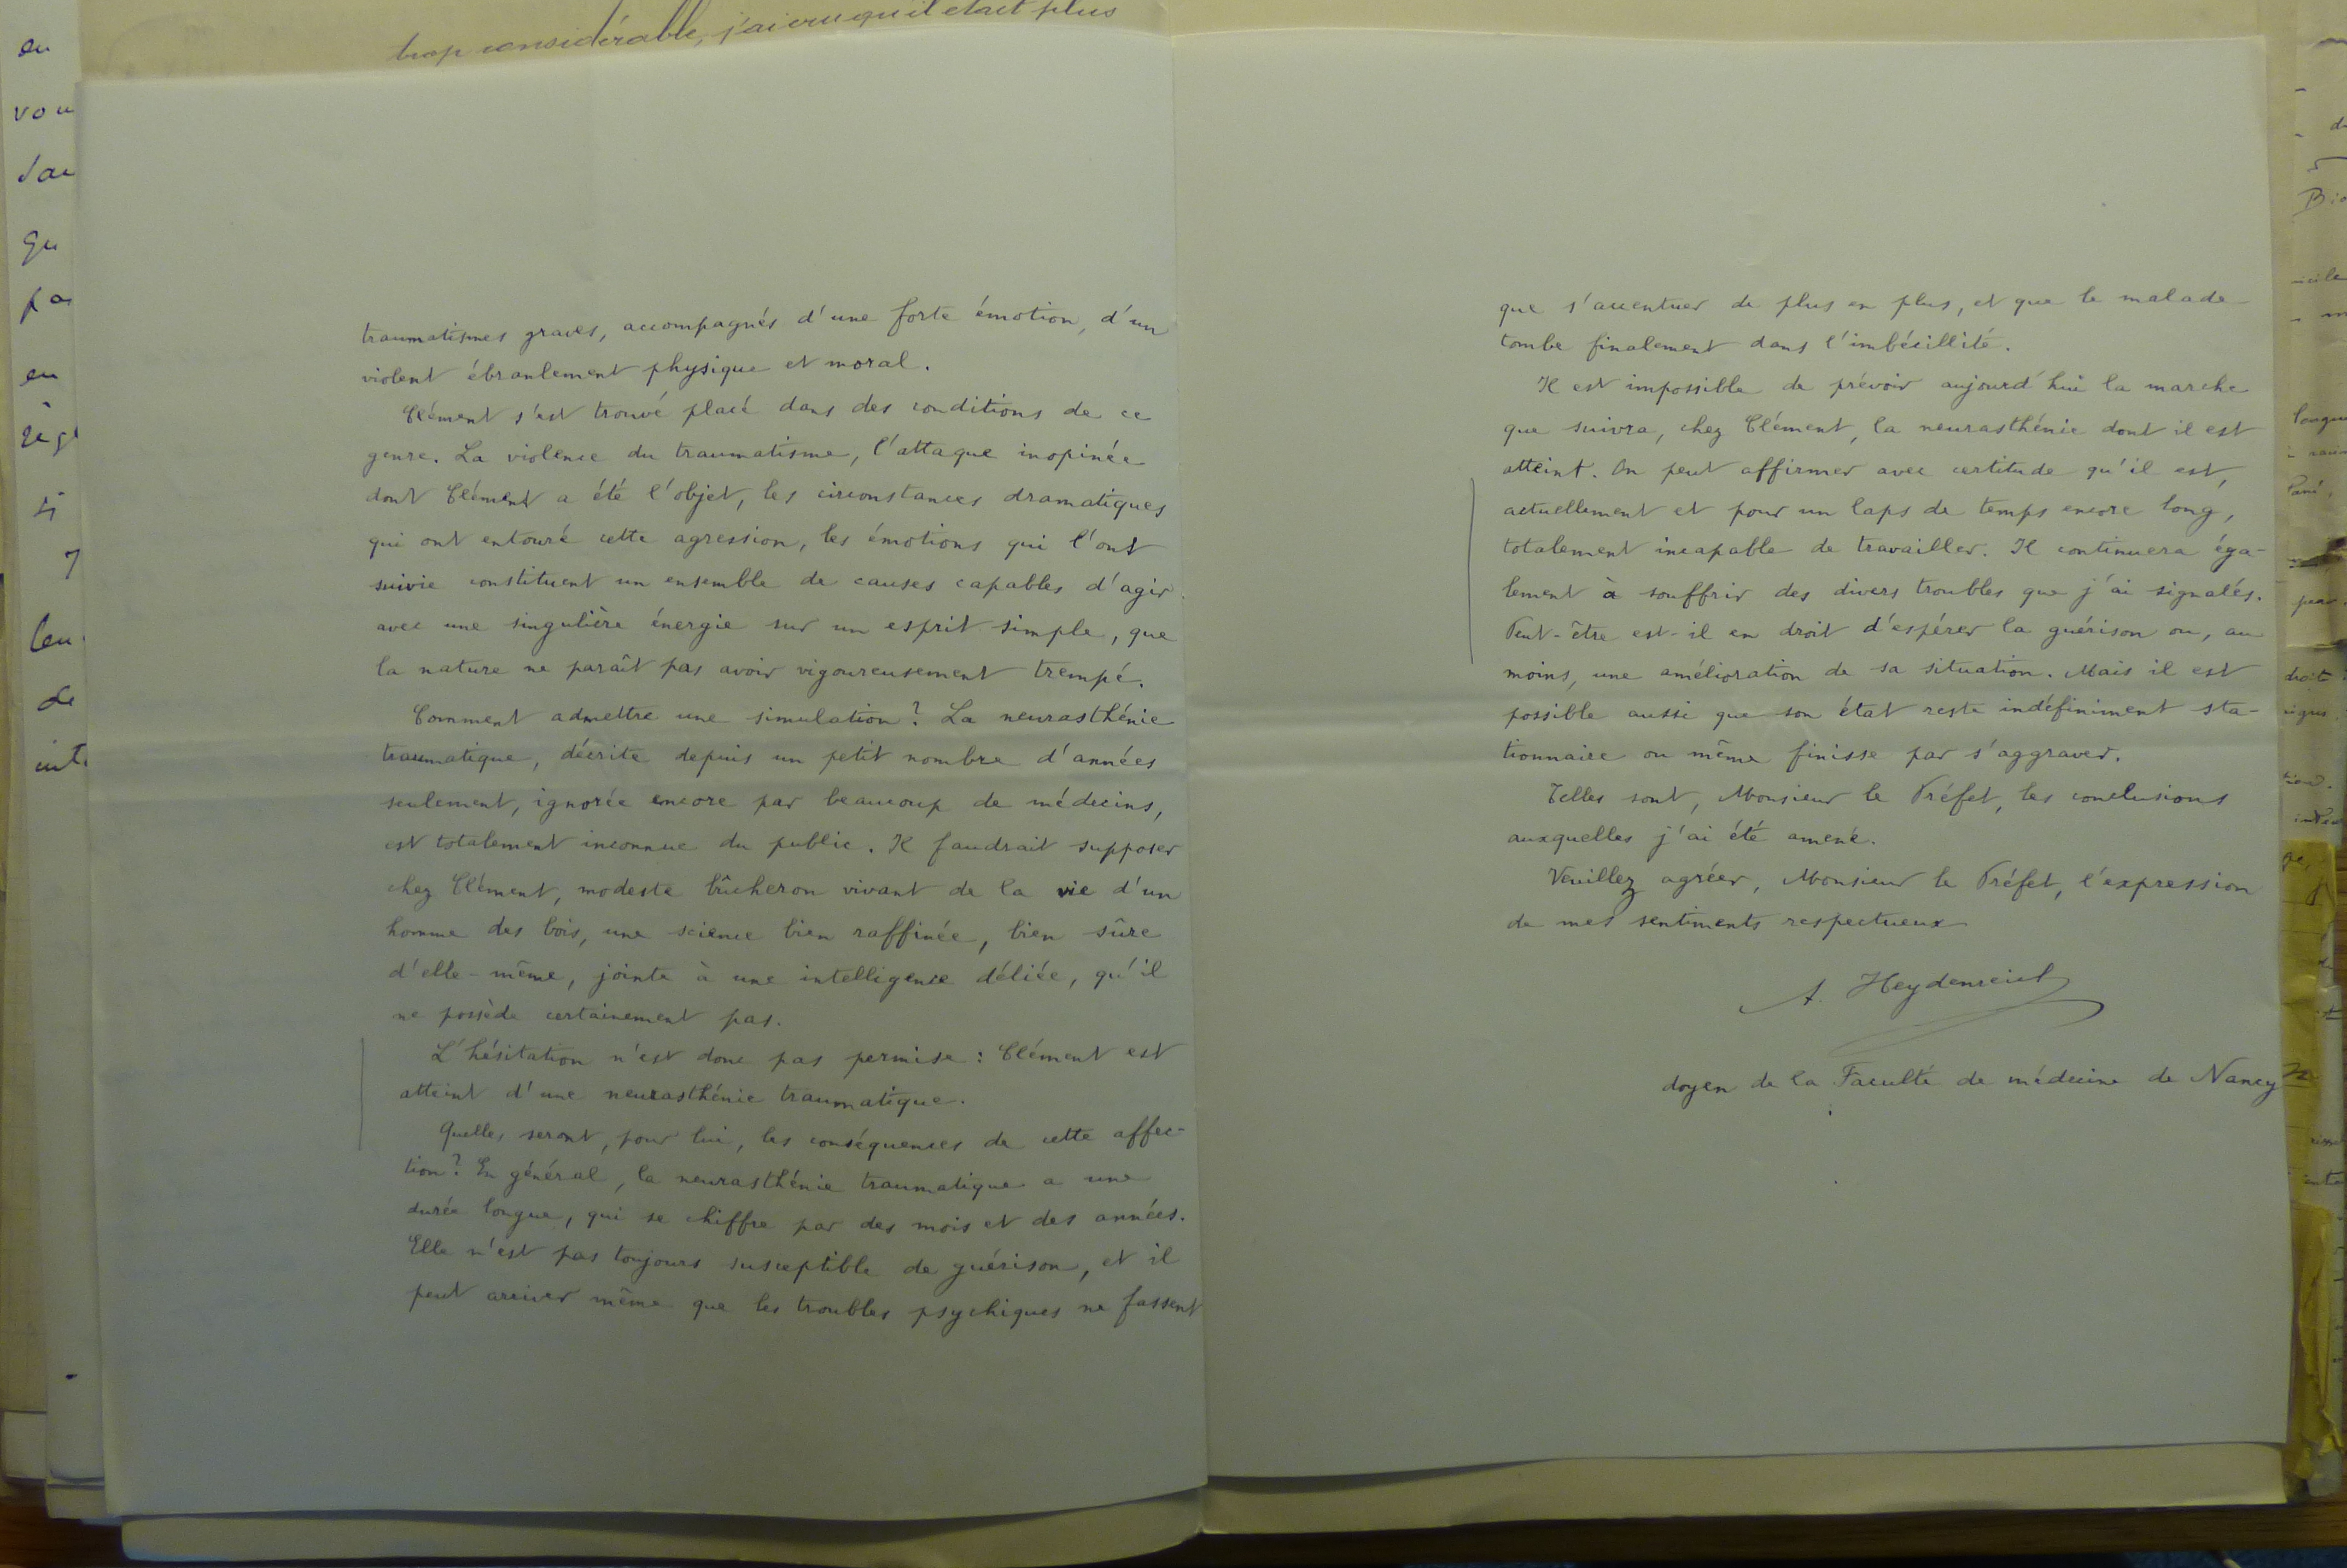 trop considérable, j'ai cru qu'il était plus
traumatismes graves, accompagnés d'une forte émotion, d'un
violent ébranlement physique et moral.
Clément s'est trouvé placé dans des conditions de ce
genre. La violence du traumatisme, l'attaque inopinée
dont Clément a été l'objet, les circonstances dramatiques
qui ont entouré cette agression, les émotions qui l'ont
suivie constituent un ensemble de causes capables d'agir
avec une singulière énergie sur un esprit simple, que
la nature ne paraît pas avoir vigoureusement trempé.
Comment admettre une simulation? La neurasthénie
traumatique, décrite depuis un petit nombre d'années
seulement, ignorée encore par beaucoup de médecins,
est totalement inconnue du public. Il faudrait supposer
chez Clément, modeste bûcheron vivant de la vie d'un
homme des bois, une science bien raffinée, bien sûre
d'elle-même, jointe à une intelligence déliée, qu'il
ne possède certainement pas.
L'hésitation n'est donc pas permise : Clément est
atteint d'une neurasthénie traumatique.
Quelles seront, pour lui, les conséquences de cette affec-
tion? En général, la neurasthénie traumatique a une
durée longue, qui se chiffre par des mois et des années.
Elle n'est pas toujours susceptible de guérison, et il
peut arriver même que les troubles psychiques ne fassent
que s'accentuer de plus en plus, et que le malade
tombe finalement dans l'imbécillité.
Il est impossible de prévoir aujourd'hui la marche
que suivra, chez Clément, la neurasthénie dont il est
atteint. On peut affirmer avec certitude qu'il est,
actuellement et pour un laps de temps encore long,
totalement incapable de travailler. Il continuera éga-
lement à souffrir des divers troubles que j'ai signalés.
Peut-être est-il en droit d'espérer la guérison ou, au
moins, une amélioration de sa situation. Mais il est
possible aussi que son état reste indéfiniment sta-
tionnaire ou même finisse par s'aggraver.
Telles sont, Monsieur le Préfet, les conclusions
auxquelles j'ai été amené.
Veuillez agréer, Monsieur le Préfet, l'expression
de mes sentiments respectueux
A. Heydenreich
doyen de la Faculté de médecine de Nancy